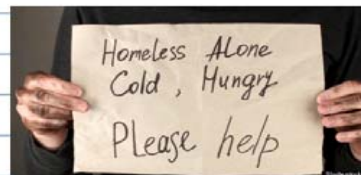 Homeless Alone
Cold, Hungry
Please help